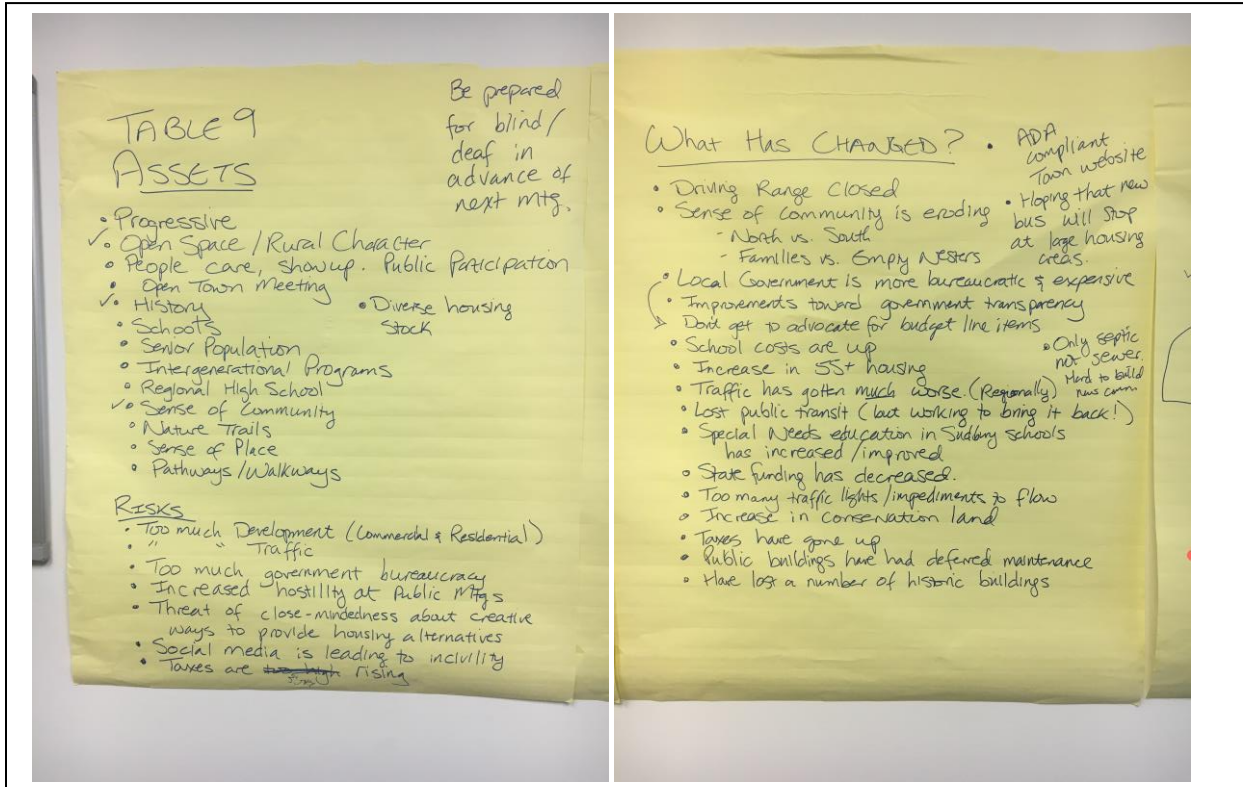 TABLE 9
ASSETS
Be prepared
for blind/
deaf in
advance of
next mtg.
• Progressive
✓• Open Space / Rural Character
• People care, show up. Public Participation
• Open Town Meeting
✓• History
• Diverse housing
stock
• Schools
• Senior Population
• Intergenerational Programs
• Regional High School
✓• Sense of Community
• Nature Trails
• Sense of Place
• Pathways / Walkways
RISKS
• Too much Development (Commercial & Residential)
• " " Traffic
• Too much government bureaucracy
• Increased hostility at Public Mtgs
• Threat of close-mindedness about creative
ways to provide housing alternatives
• Social media is leading to incivility
• Taxes are too high rising
What Has CHANGED?
• ADA
compliant
Town website
• Hoping that new
bus will stop
at large housing
areas.
• Driving Range Closed
• Sense of community is eroding
- North vs. South
- Families vs. Empty Nesters
• Local Government is more bureaucratic & expensive
• Improvements toward government transparency
Don't get to advocate for budget line items
• School costs are up
• Only septic
not sewer.
Hard to build
new comm.
• Increase in 55+ housing
• Traffic has gotten much worse. (Regionally)
• Lost public transit (but working to bring it back!)
• Special Needs education in Sudbury schools
has increased / improved
• State funding has decreased.
• Too many traffic lights / impediments to flow
• Increase in conservation land
• Taxes have gone up
• Public buildings have had deferred maintenance
• Have lost a number of historic buildings